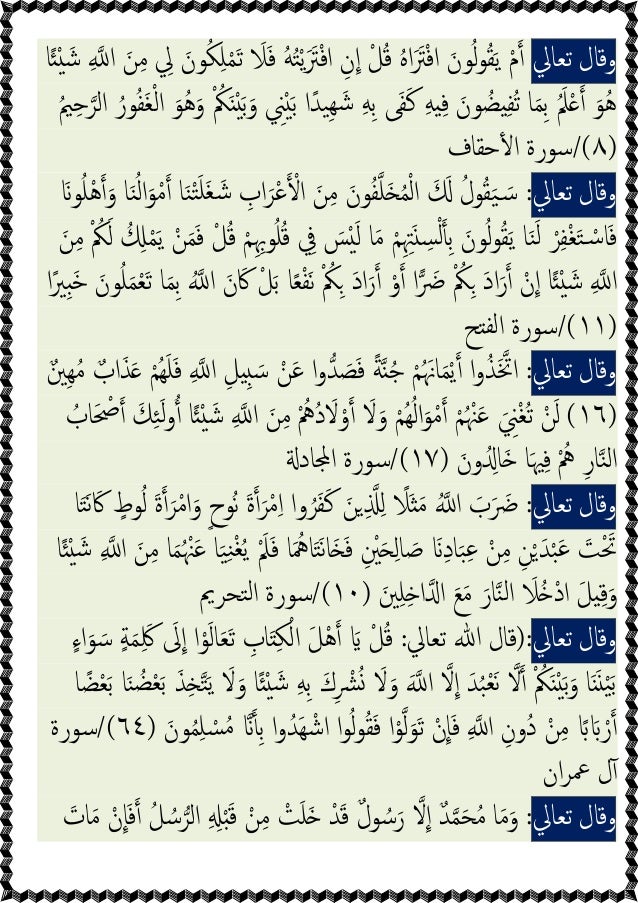 وقال تعالي أَمْ يَقُولُونَ افْتَرَاهُ قُلْ إِنِ افْتَرَيْتُهُ فَلَا تَمْلِكُونَ لِي مِنَ اللَّهِ شَيْئًا
هُوَ أَعْلَمُ بِمَا تُفِيضُونَ فِيهِ كَفَى بِهِ شَهِيدًا بَيْنِي وَبَيْنَكُمْ وَهُوَ الْغَفُورُ الرَّحِيمُ
(٨)/سورة الأحقاف
وقال تعالي: سَيَقُولُ لَكَ الْمُخَلَّفُونَ مِنَ الْأَعْرَابِ شَغَلَتْنَا أَمْوَالُنَا وَأَهْلُونَا
فَاسْتَغْفِرْ لَنَا يَقُولُونَ بِأَلْسِنَتِهِمْ مَا لَيْسَ فِي قُلُوبِهِمْ قُلْ فَمَنْ يَمْلِكُ لَكُمْ مِنَ
اللَّهِ شَيْئًا إِنْ أَرَادَ بِكُمْ ضَرًّا أَوْ أَرَادَ بِكُمْ نَفْعًا بَلْ كَانَ اللَّهُ بِمَا تَعْمَلُونَ خَبِيرًا
(١١)/سورة الفتح
وقال تعالي: اتَّخَذُوا أَيْمَانَهُمْ جُنَّةً فَصَدُّوا عَنْ سَبِيلِ اللَّهِ فَلَهُمْ عَذَابٌ مُهِينٌ
(١٦) لَنْ تُغْنِيَ عَنْهُمْ أَمْوَالُهُمْ وَلَا أَوْلَادُهُمْ مِنَ اللَّهِ شَيْئًا أُولَئِكَ أَصْحَابُ
النَّارِ هُمْ فِيهَا خَالِدُونَ (١٧)/سورة المجادلة
وقال تعالي: ضَرَبَ اللَّهُ مَثَلًا لِلَّذِينَ كَفَرُوا اِمْرَأَةَ نُوحٍ وَامْرَأَةَ لُوطٍ كَانَتَا
تَحْتَ عَبْدَيْنِ مِنْ عِبَادِنَا صَالِحَيْنِ فَخَانَتَاهُمَا فَلَمْ يُغْنِيَا عَنْهُمَا مِنَ اللَّهِ شَيْئًا
وَقِيلَ ادْخُلَا النَّارَ مَعَ الدَّاخِلِينَ (١٠)/سورة التحريم
وقال تعالي:(قال الله تعالي: قُلْ يَا أَهْلَ الْكِتَابِ تَعَالَوْا إِلَى كَلِمَةٍ سَوَاءٍ
بَيْنَنَا وَبَيْنَكُمْ أَلَّا نَعْبُدَ إِلَّا اللَّهَ وَلَا نُشْرِكَ بِهِ شَيْئًا وَلَا يَتَّخِذَ بَعْضُنَا بَعْضًا
أَرْبَابًا مِنْ دُونِ اللَّهِ فَإِنْ تَوَلَّوْا فَقُولُوا اشْهَدُوا بِأَنَّا مُسْلِمُونَ (٦٤)/سورة
آل عمران
وقال تعالي: وَمَا مُحَمَّدٌ إِلَّا رَسُولٌ قَدْ خَلَتْ مِنْ قَبْلِهِ الرُّسُلُ أَفَإِنْ مَاتَ